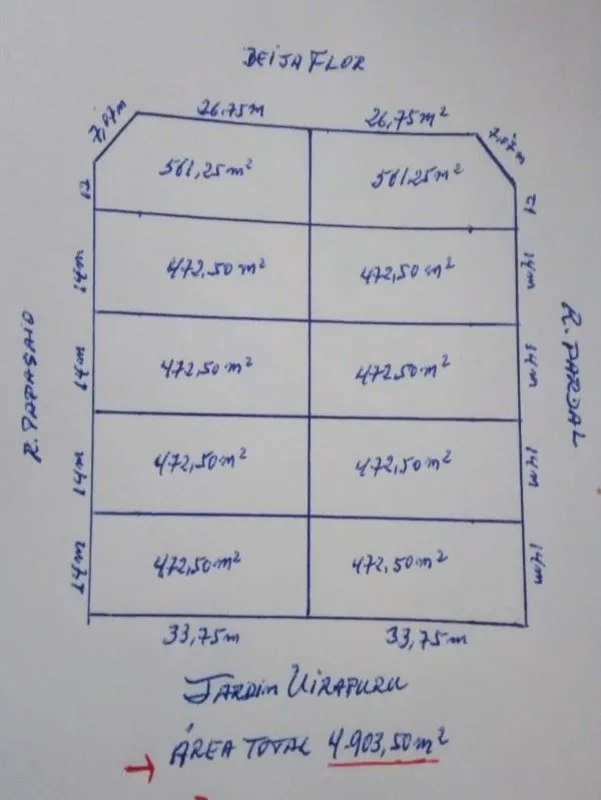 BEIJA FLOR
26,75m
26,75m²
7,07m
7,07m
561,25m²
561,25m²
12
12
472,50m²
472,50m²
14m
14m
472,50m²
472,50m²
14m
14m
R. PAPAGAIO
R. PARDAL
472,50m²
472,50m²
14m
14m
472,50m²
472,50m²
14m
14m
33,75m
33,75m
JARDIM UIRAPURU
ÁREA TOTAL 4.903,50m²